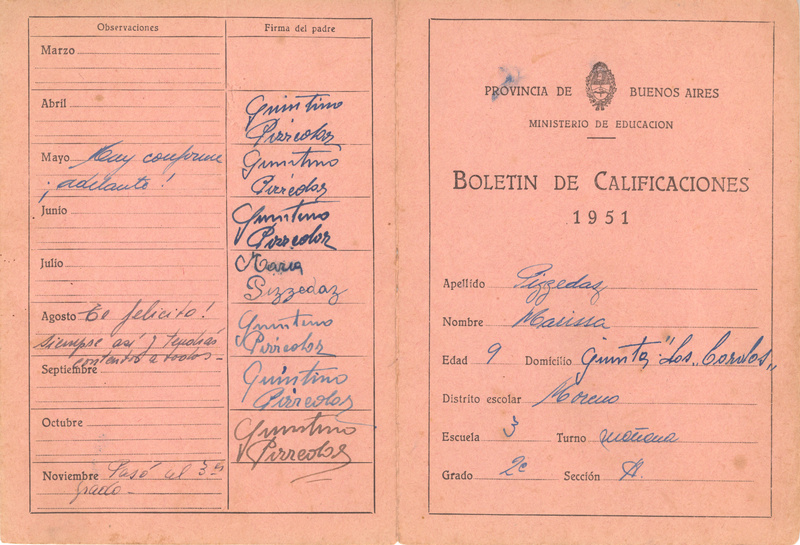 Observaciones
Firma del padre
Marzo
Abril
Quintino
Pizzedaz
Mayo Muy conforme
¡adelante!
Quintino
Pizzedaz
Junio
Quintino
Pizzedaz
Julio
Maria
Pizzedaz
Agosto Te felicito!
siempre así y tendrás
contento a todos-
Quintino
Pizzedaz
Septiembre
Quintino
Pizzedaz
Octubre
Quintino
Pizzedaz
Noviembre Pasó al 3er
grado-
PROVINCIA DE BUENOS AIRES
MINISTERIO DE EDUCACION
BOLETIN DE CALIFICACIONES
1951
Apellido Pizzedaz
Nombre Marissa
Edad 9 Domicilio Quinta "Los
Distrito escolar Moreno
Escuela 3 Turno mañana
Grado 2º Sección A.